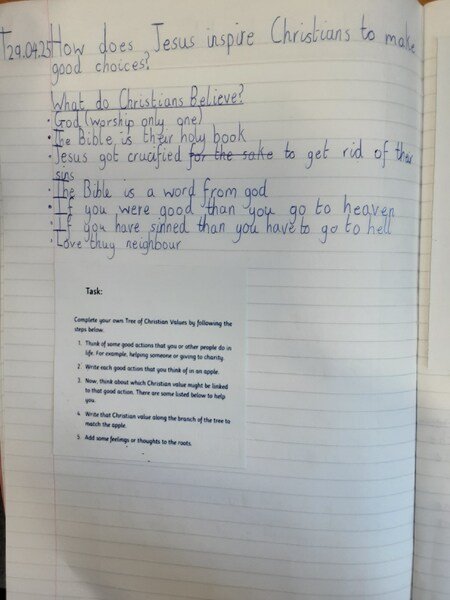 T29.04.25 How does Jesus inspire Christians to make
good choices?
What do Christians Believe?
• God (worship only one)
• The Bible is their holy book
• Jesus got crucified for the sake to get rid of their
sins
• The Bible is a word from god
• If you were good than you go to heaven
• If you have sinned than you have to go to hell
• Love thuy neighbour
Task:
Complete your own Tree of Christian Values by following the
steps below.
1. Think of some good actions that you or other people do in
life. For example, helping someone or giving to charity.
2. Write each good action that you think of in an apple.
3. Now, think about which Christian value might be linked
to that good action. There are some listed below to help
you.
4. Write that Christian value along the branch of the tree to
match the apple.
5. Add some feelings or thoughts to the roots.